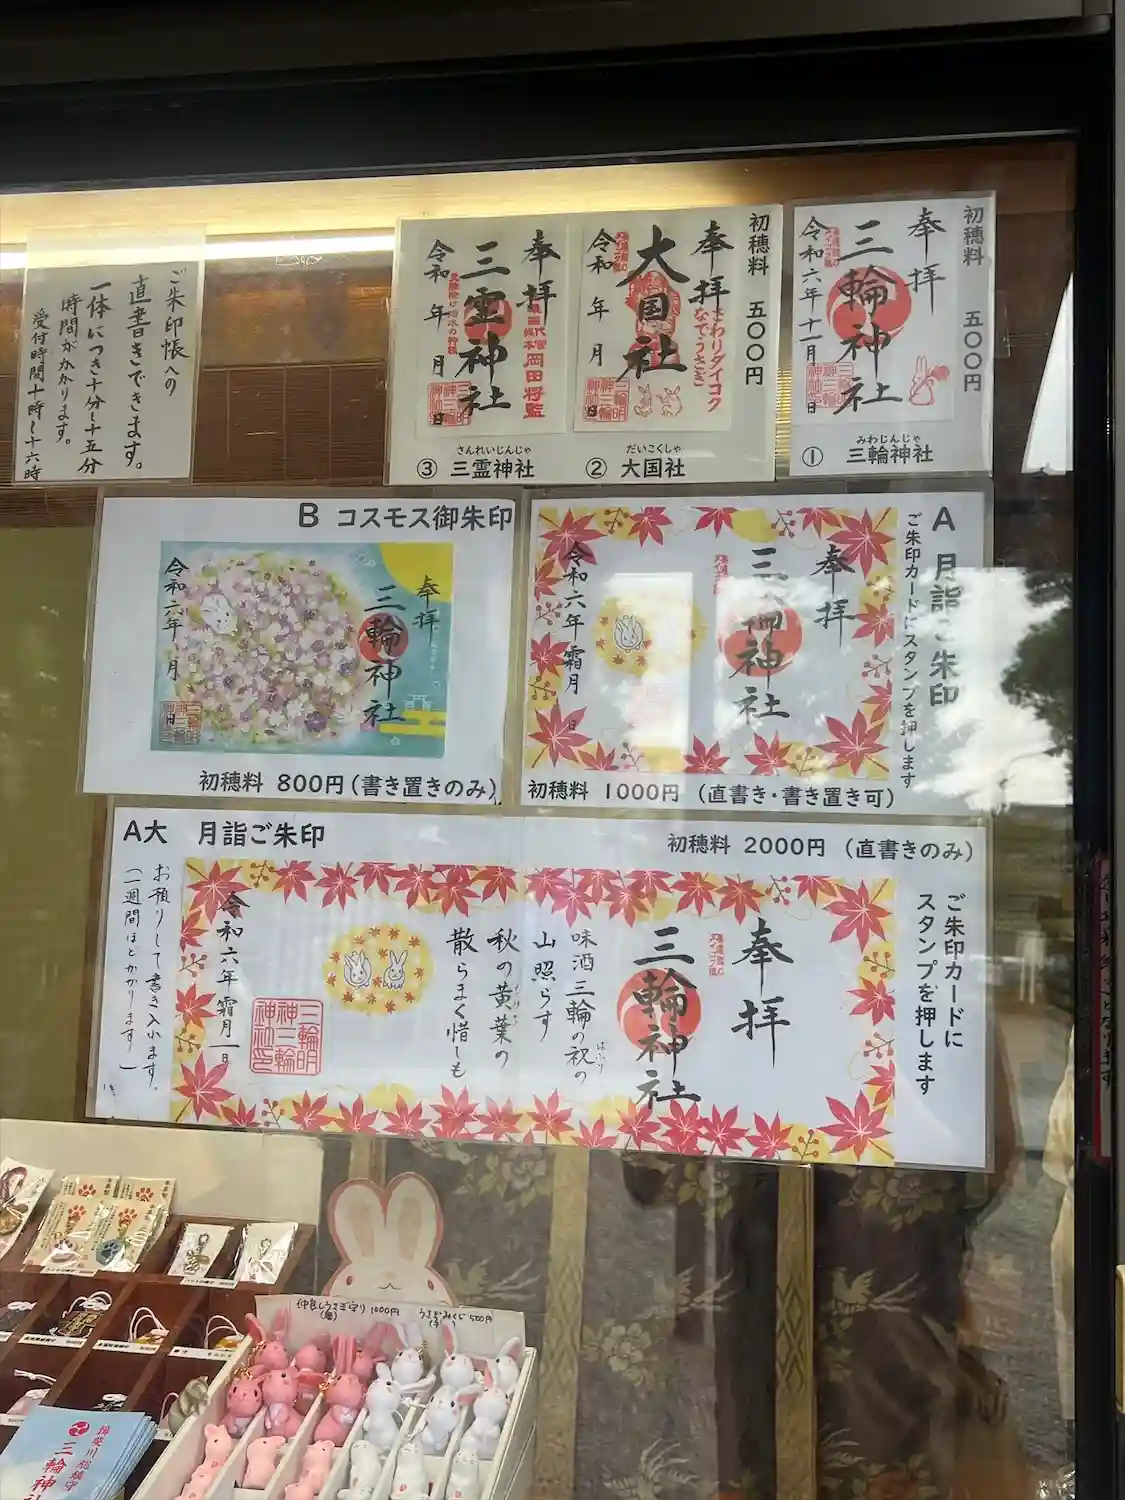 初穂料 五〇〇円
奉拝
三輪神社
令和六年十一月
日
① 三輪神社
みわじんじゃ
初穂料 五〇〇円
奉拝
さわりダイコク
なでうさぎ
大国社
令和 年 月
日
② 大国社
だいこくしゃ
奉拝
岡田将監
三霊神社
令和 年 月
日
③ 三霊神社
さんれいじんじゃ
ご朱印帳への
直書きできます。
一体につき十分~十五分
時間がかかります。
受付時間十時~十六時
A 月詣ご朱印
ご朱印カードにスタンプを押します
奉拝
三輪神社
令和六年霜月
日
初穂料 1000円 (直書き・書き置き可)
B コスモス御朱印
奉拝
三輪神社
令和六年 月
日
初穂料 800円(書き置きのみ)
A大 月詣ご朱印
初穂料 2000円 (直書きのみ)
ご朱印カードに
スタンプを押します
奉拝
三輪神社
味酒三輪の祝の
はふり
山照らす
秋の黄葉の
散らまく惜しも
三輪明
神三輪
神社印
令和六年霜月一日
お預りして書き入れます。
(一週間ほどかかります)
仲良しうさぎ守り 1000円
うさぎみくじ 500円
三輪神社